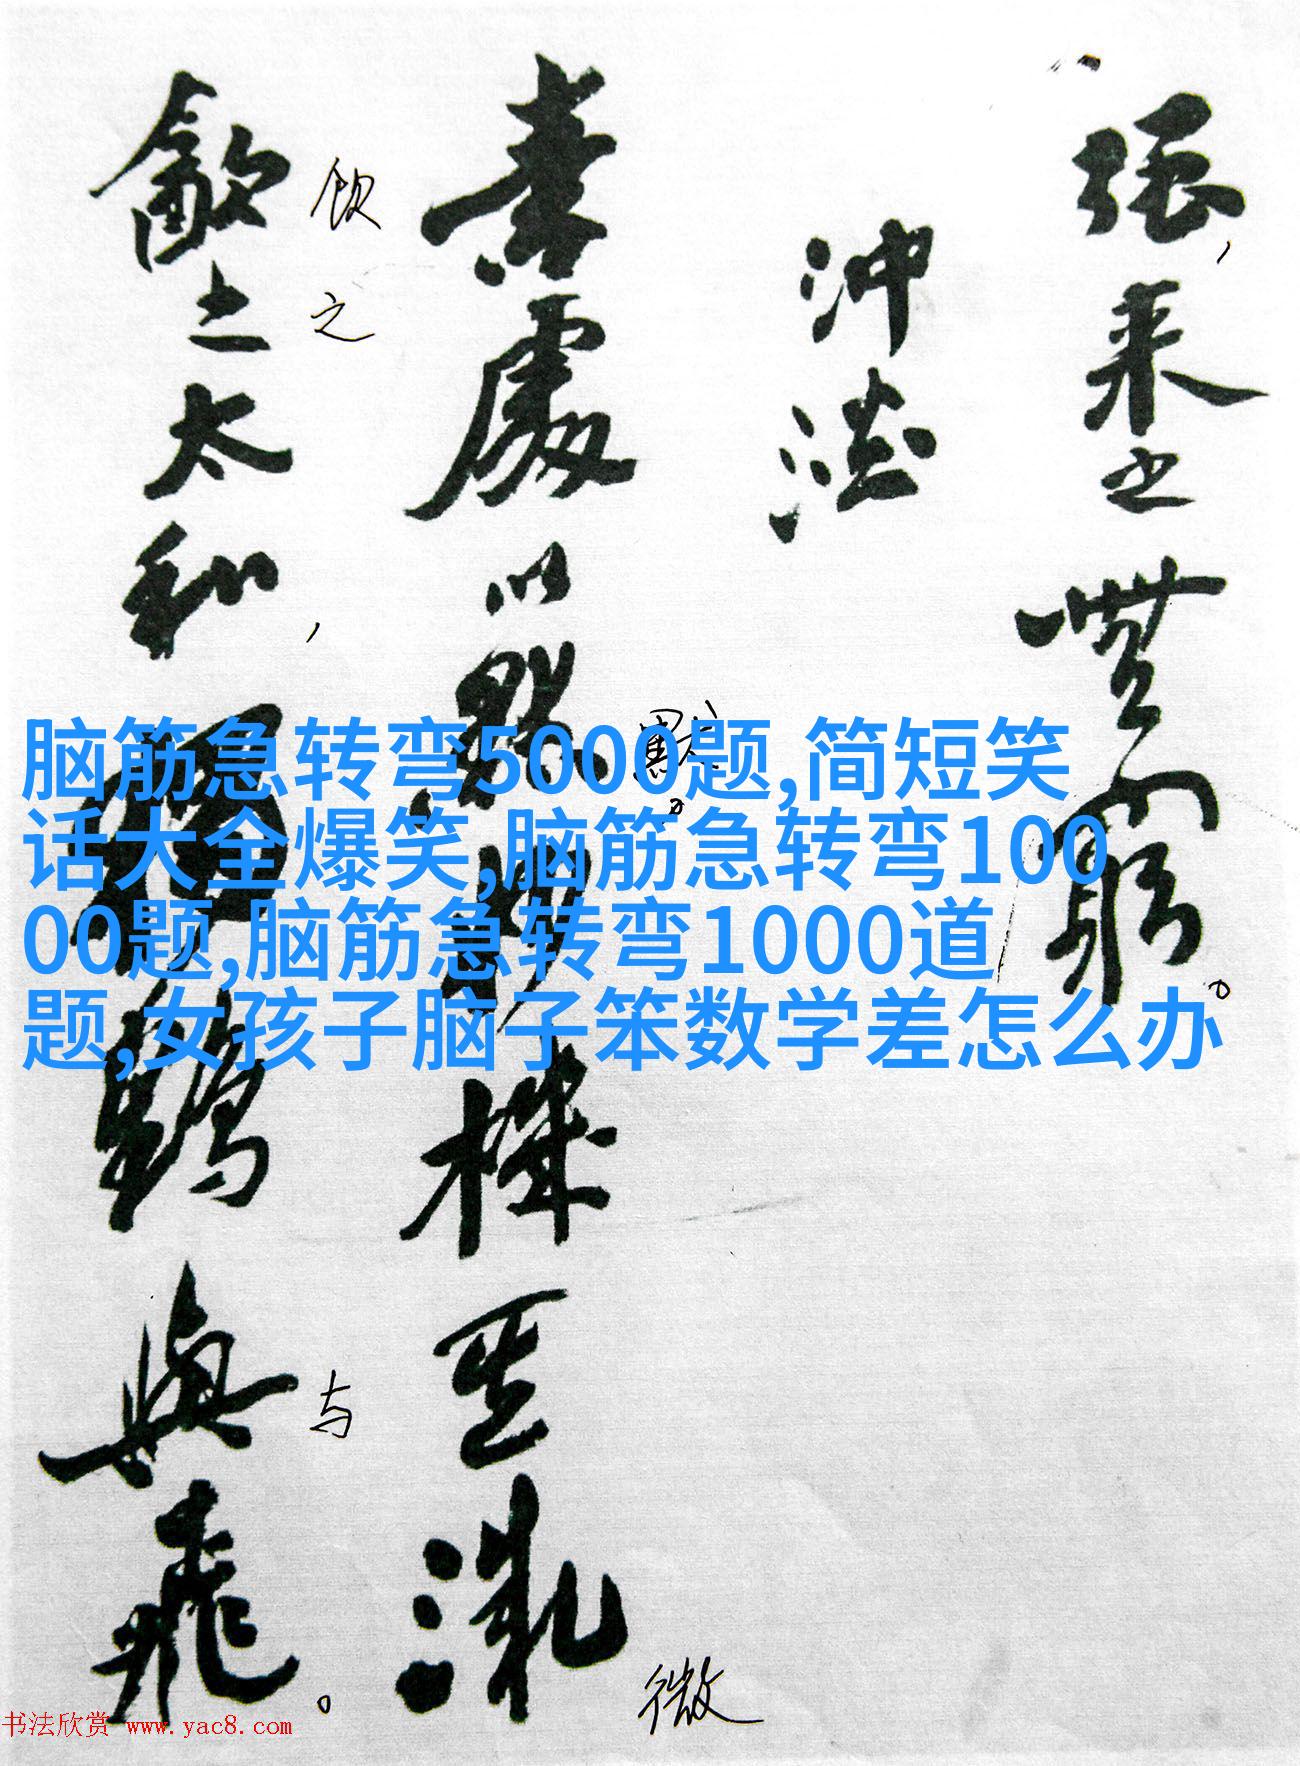 强，来之無窮。
沖澹
素處以默妙機其微
默。
微
飲之太和，獨鶴與飛。
饮之
与
脑筋急转弯5000题,简短笑
话大全爆笑,脑筋急转弯100
00题,脑筋急转弯1000道
题,女孩子脑子笨数学差怎么办
书法欣赏 www.yac8.com